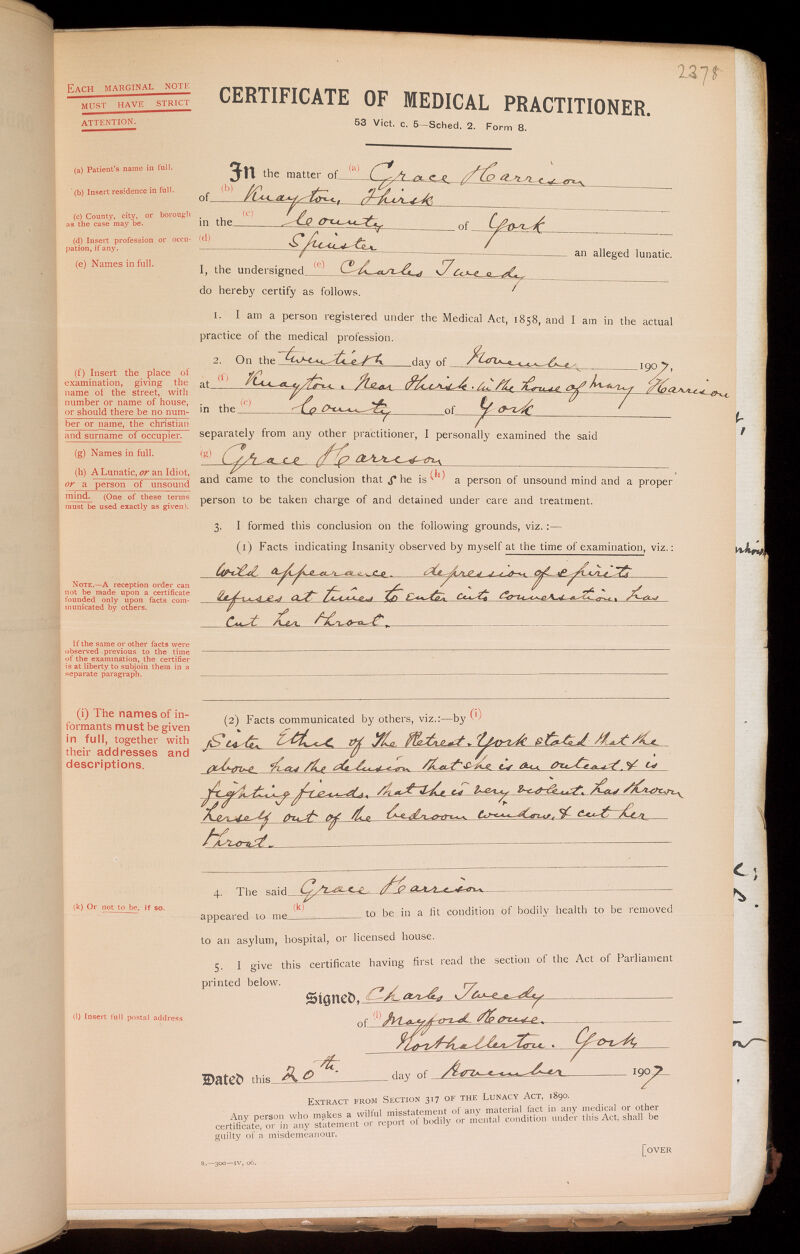 2378
EACH MARGINAL NOTE
MUST HAVE STRICT
ATTENTION.
CERTIFICATE OF MEDICAL PRACTITIONER.
53 Vict. c. 5—Sched. 2. Form 8.
(a) Patient's name in full.
In the matter of (a) Grace Harrison
(b) Insert residence in full.
of (b) Knayton, Thirsk
(c) County, city, or borough
as the case may be.
in the (c) County of York
(d) Insert profession or occu-
pation, if any.
(d) Spinster an alleged lunatic.
(e) Names in full.
I, the undersigned (e) Charles Tweedy
do hereby certify as follows.
1. I am a person registered under the Medical Act, 1858, and I am in the actual
practice of the medical profession.
2. On the twentieth day of November 1907,
(f) Insert the place of
examination, giving the
name of the street, with
number or name of house,
or should there be no num-
ber or name, the christian
and surname of occupier.
at (f) Knayton. Near Thirsk. in the house of Mary Harrison
in the (c) County of York
separately from any other practitioner, I personally examined the said
(g) Names in full.
(g) Grace Harrison
(h) A Lunatic, or an Idiot,
or a person of unsound
mind. (One of these terms
must be used exactly as given).
and came to the conclusion that She is (h) a person of unsound mind and a proper
person to be taken charge of and detained under care and treatment.
3. I formed this conclusion on the following grounds, viz.:—
(1) Facts indicating Insanity observed by myself at the time of examination, viz.:
NOTE.—A reception order can
not be made upon a certificate
founded only upon facts com-
municated by others.
Wild appearance. depression of spirits
refuses at times to enter into conversation. has
cut her throat.
If the same or other facts were
observed previous to the time
of the examination, the certifier
is at liberty to subjoin them in a
separate paragraph.
(i) The names of in-
formants must be given
in full, together with
their addresses and
descriptions.
(2) Facts communicated by others, viz.:—by (i)
Sister Ethel of The Retreat. York stated that the
above has the delusion that she is an outcast & is
fighting fiends. that she is very violent. has thrown
herself out of the bedroom window, & cut her
throat.
4. The said Grace Harrison
(k) Or not to be, if so.
appeared to me (k) to be in a fit condition of bodily health to be removed
to an asylum, hospital, or licensed house.
5. I give this certificate having first read the section of the Act of Parliament
printed below.
Signed, Charles Tweedy
(l) Insert full postal address
of (l) Mayford House.
Northallerton. York
Dated this 20th. day of November 1907
EXTRACT FROM SECTION 317 OF THE LUNACY ACT, 1890.
Any person who makes a wilful misstatement of any material fact in any medical or other
certificate, or in any statement or report of bodily or mental condition under this Act, shall be
guilty of a misdemeanour.
[OVER
R.—300—IV, 06.